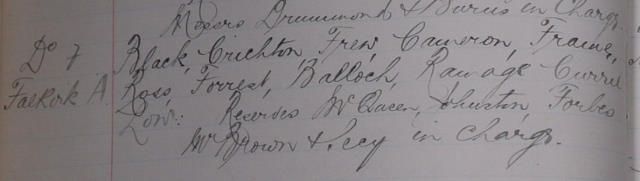 Rogers Drummond & Burns in Charge.
Do 7 Black, Crichton, Frew, Cameron, Frame,
Falkirk A. Ross, Forrest, Balloch, Ramage Currie
Reserves McQueen, Johnston, Forbes
Mr Brown & Secy in Charge.